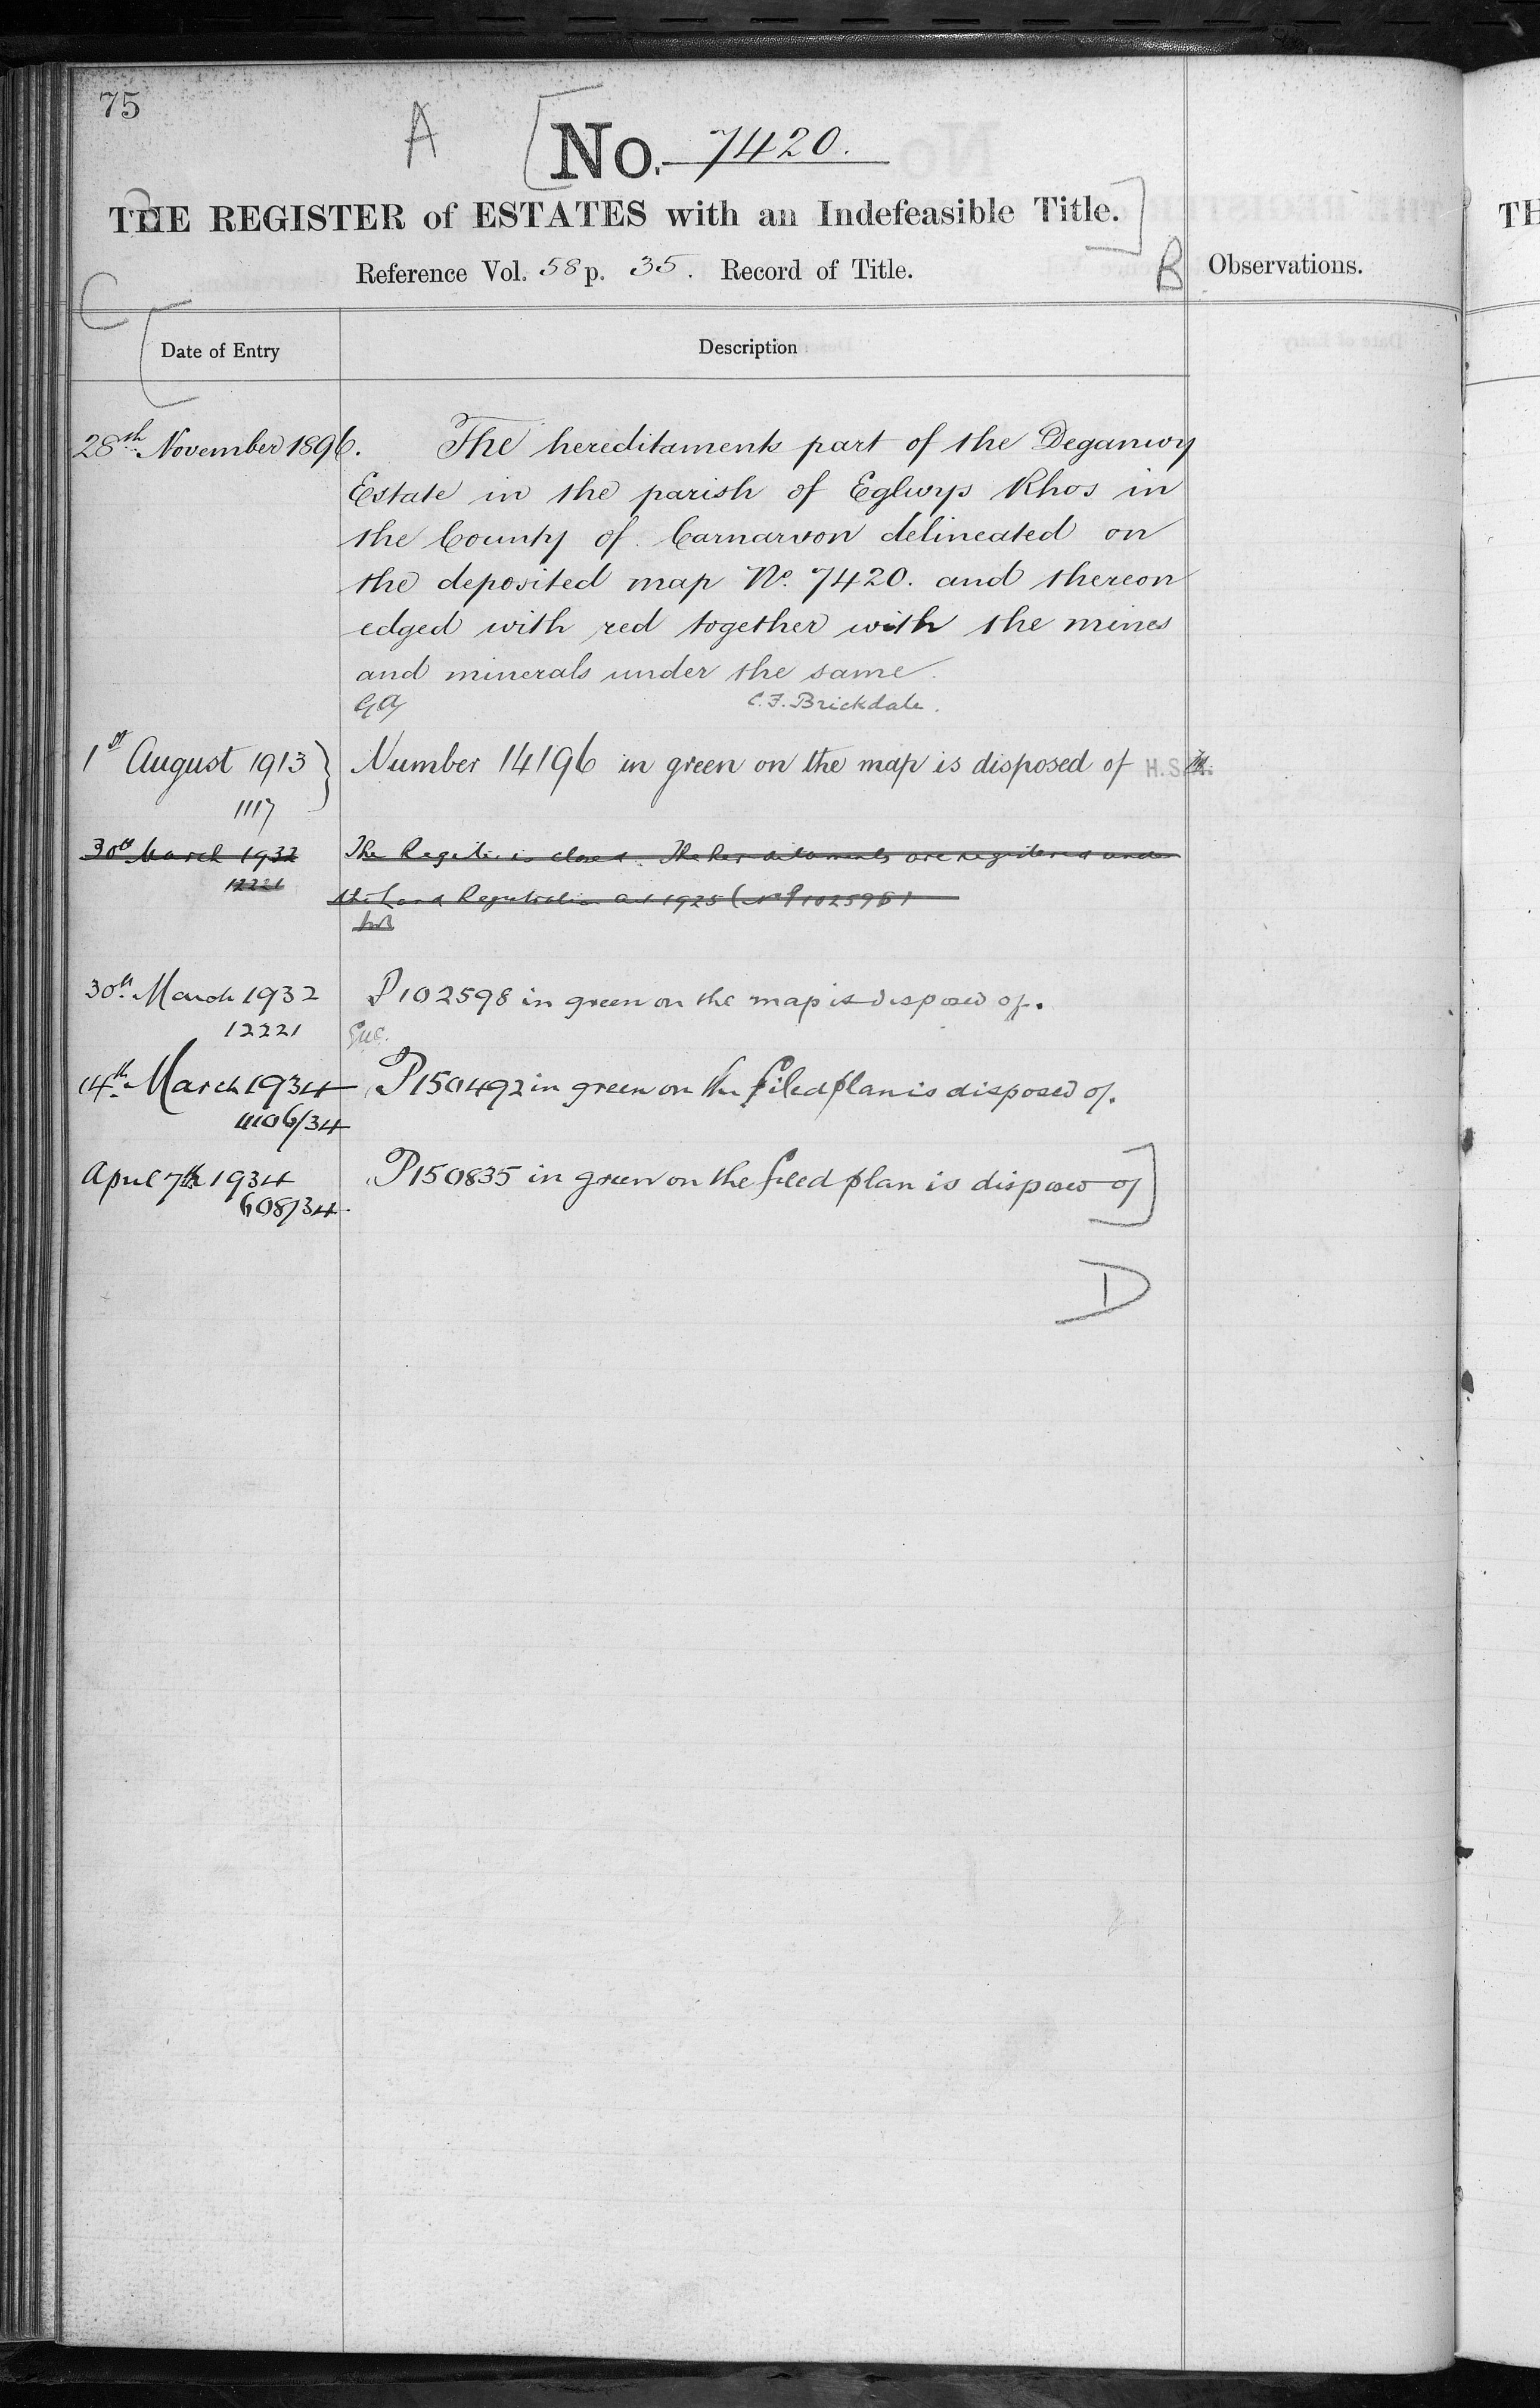 75
A
No. 7420.
THE REGISTER of ESTATES with an Indefeasible Title.
Reference Vol. 58 p. 35. Record of Title.
B
Observations.
C
Date of Entry
Description
28th November 1896.
The hereditaments part of the Deganwy
Estate in the parish of Eglwys Rhos in
the County of Carnarvon delineated on
the deposited map No. 7420. and thereon
edged with red together with the mines
and minerals under the same.
C.F. Brickdale.
1st August 1913
1117
Number 14196 in green on the map is disposed of
30th March 1932
12221
The Register is closed. The hereditaments are registered under
the Land Registration Act 1925 (No P102598)
30th March 1932
12221
P102598 in green on the map is disposed of.
14th March 1934
P150492 in green on the filed plan is disposed of.
April 7th 1934
608/34
P150835 in green on the filed plan is disposed of
D
TH